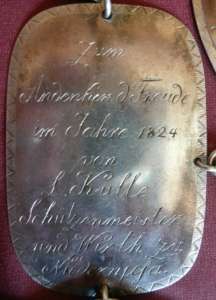 Zum
Andenken d. Freude
im Jahre 1824
von
L. Kulle
Schützenmeister
und Wirth zu